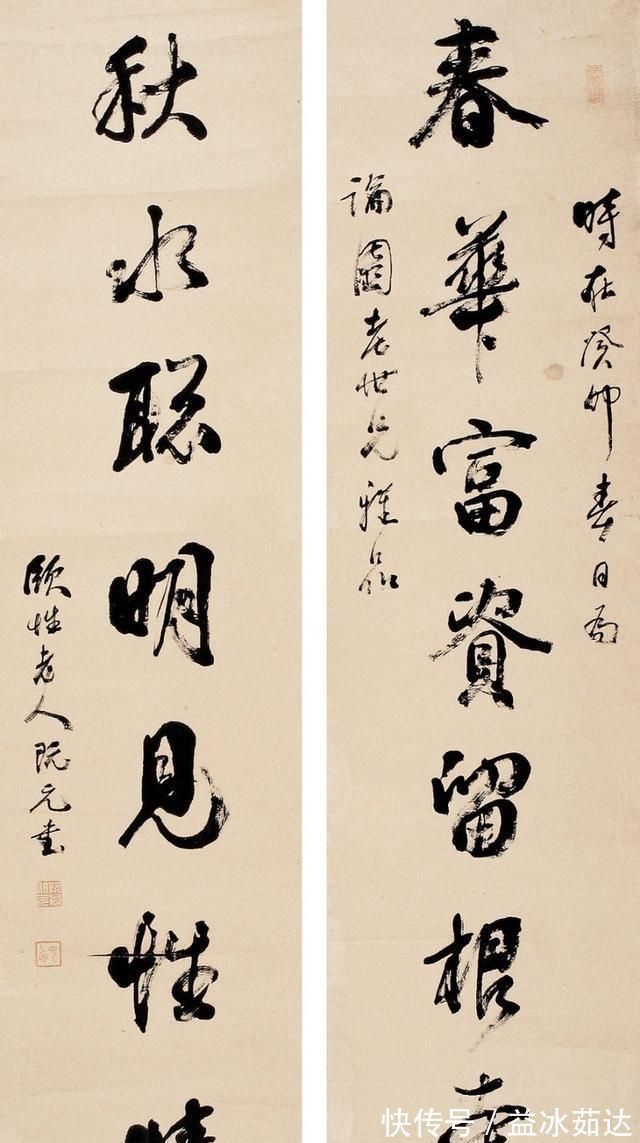 時在癸卯春日為
春華富資留根
論園老世兄雅品
秋水聰明見性情
頤性老人阮元書
快传号 / 益冰茹达